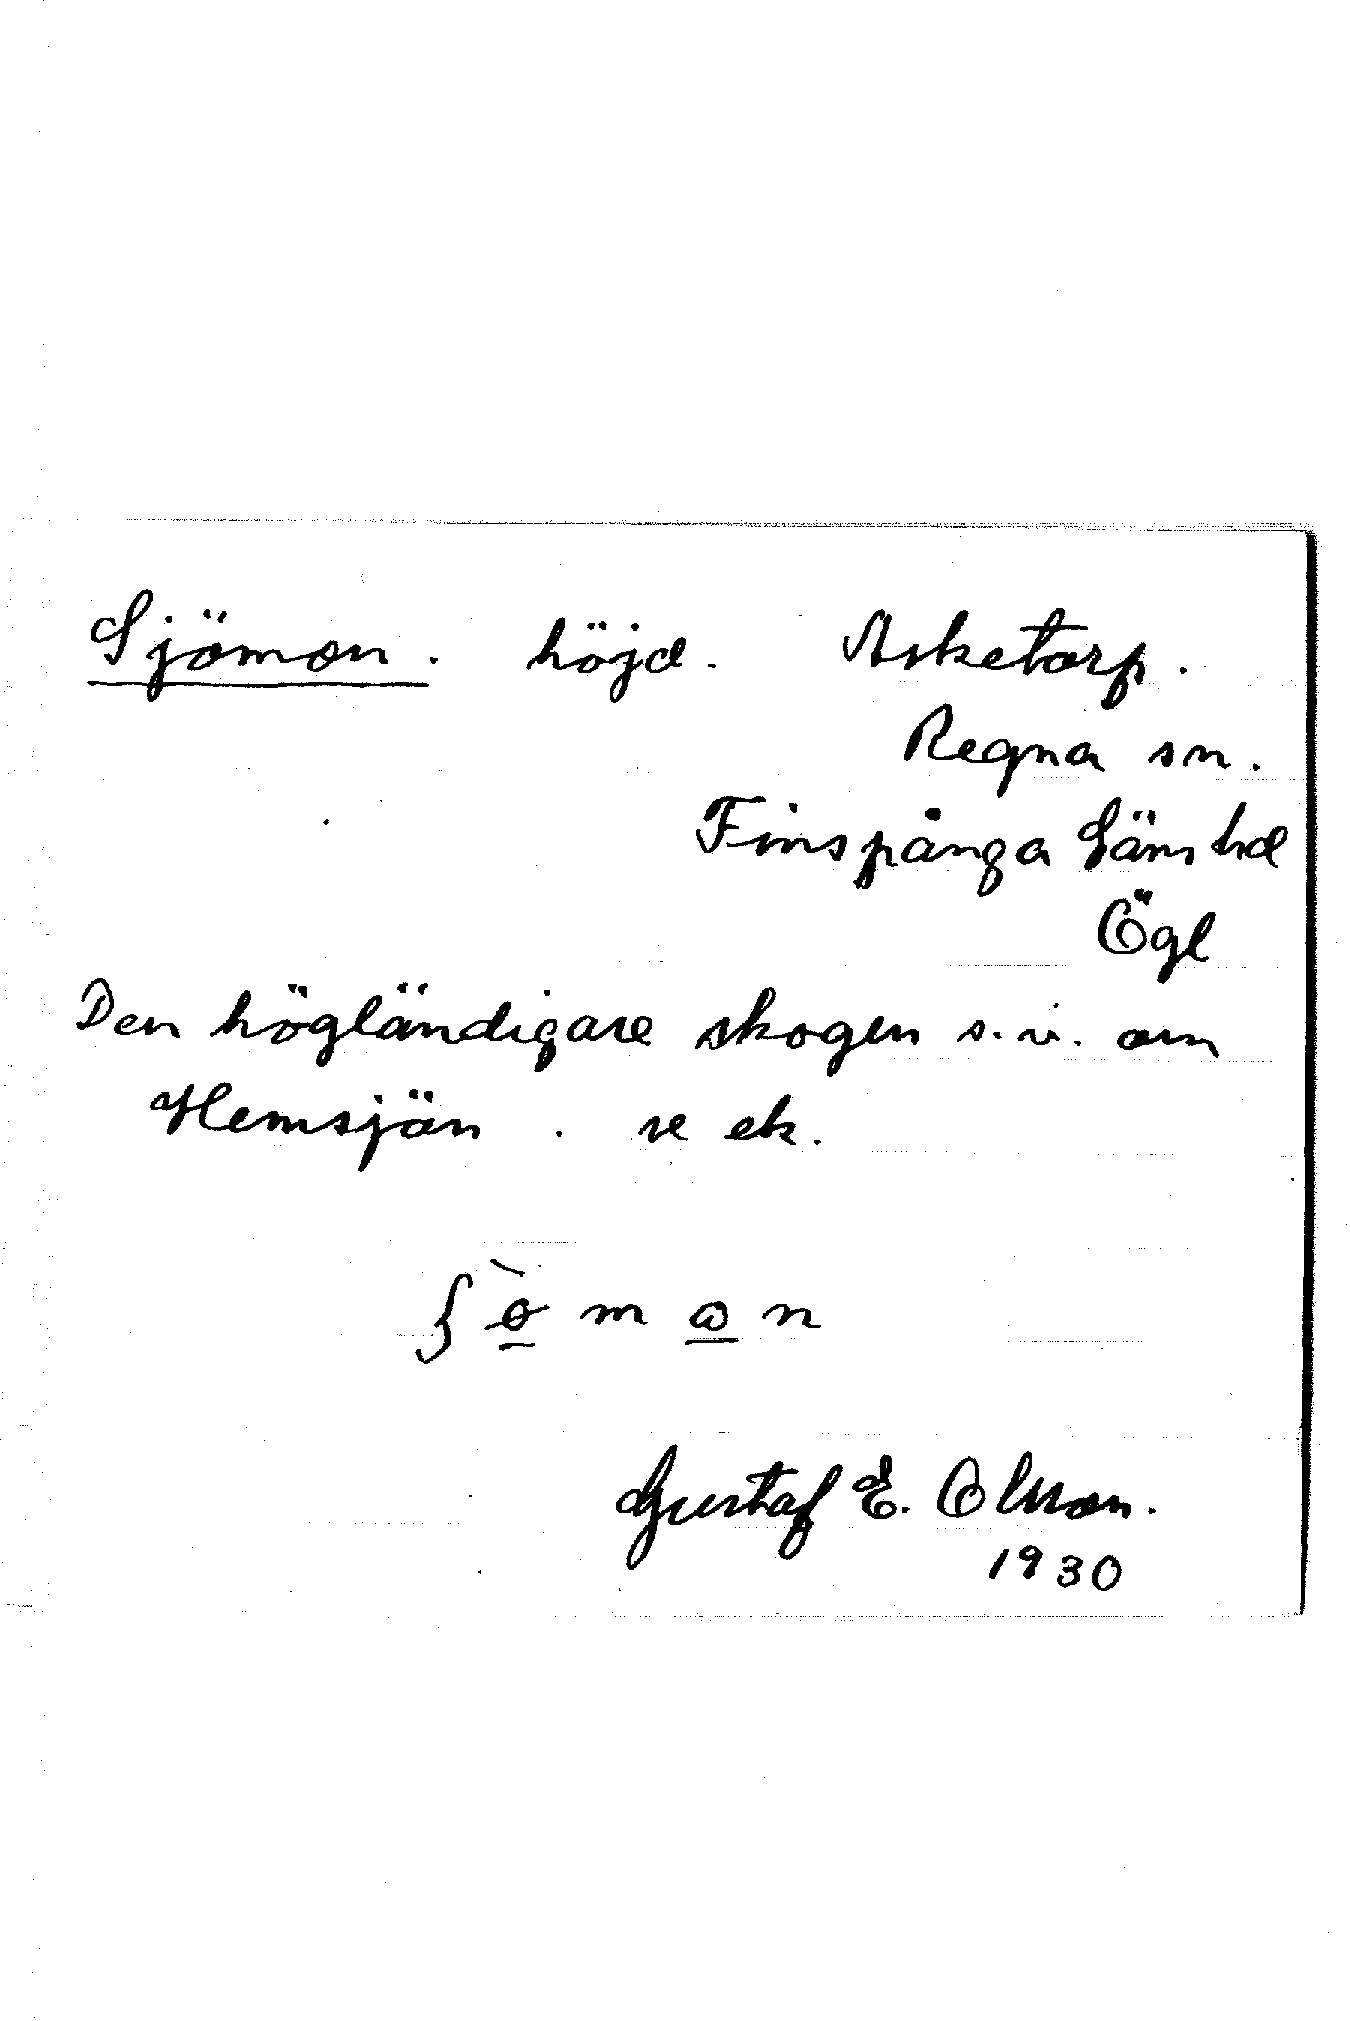 Sjömon. höjd. Asketorp.
Regna sn.
Finspånga läns hd
Ögl
Den högländigare skogen s.v. om
Hemsjön. se ek.
Gustaf E. Olsson.
1930